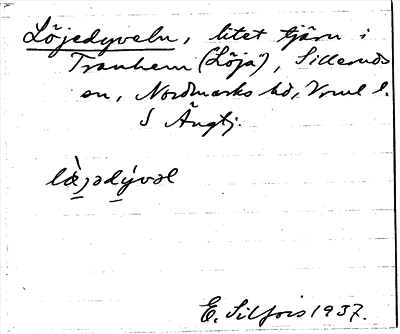 Löjedyveln, litet tjärn i
Tranhem (Löja), Silleruds
sn, Nordmarks hd, Vrml l.
S Ängtj.
E. Silfors 1937.